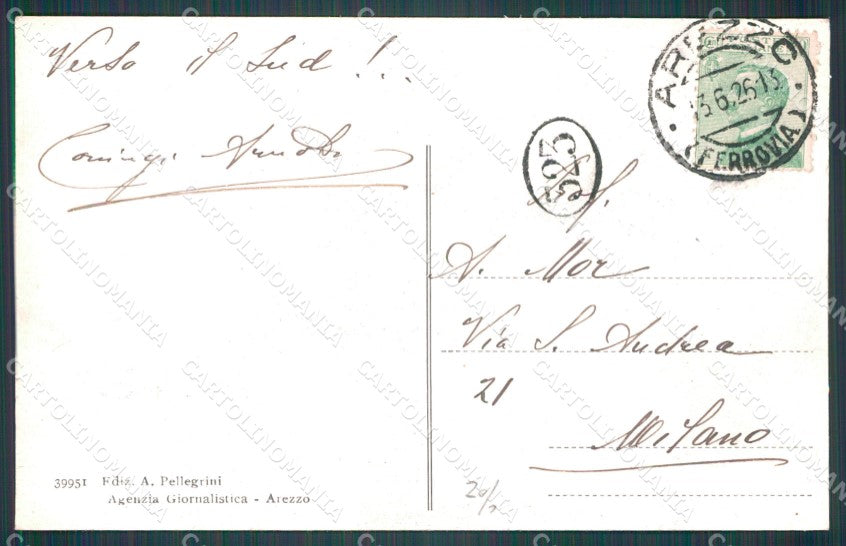 Verso il Sud !...
AREZZO
13.6.26.13
(FERROVIA)
A. Mor
Via S. Andrea
21
Milano
39951 Ediz. A. Pellegrini
Agenzia Giornalistica - Arezzo
CARTOLINOMANIA